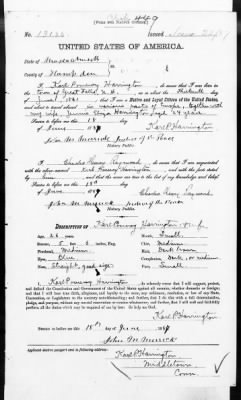 [FORM FOR NATIVE CITIZEN.]
No. 13155 Issued
UNITED STATES OF AMERICA.
STATE OF Massachusetts
COUNTY OF Hampden
I, Karl Pomeroy Harrington, do swear that I was born in the
town of Great Falls, N.H., on or about the Thirteenth day of
June, 1861; that I am a Native and Loyal Citizen of the United States,
and about to travel abroad in various parts of Europe, together with
my wife, Jennie Eliza Harrington, aged 24 years
Sworn to before me this 18th
day of June 1887 Karl P. Harrington
John M. Merrick Justice of the Peace
I, Charles Henry Raymond, do swear that I am acquainted with the
above named Karl Pomeroy Harrington, and with the facts stated
by him, and that the same are true to the best of my knowledge and belief.
Sworn to before me this 18th
day of June 1887 Charles Henry Raymond
John M. Merrick Justice of the Peace
DESCRIPTION OF Karl Pomeroy Harrington
Age: 26 years. Mouth: Small
Stature: 5 feet 8 inches, Eng. Chin: Medium
Forehead: Medium Hair: Dark brown
Eyes: Blue Complexion:
Nose: Straight, good size Face: Small
I, Karl Pomeroy Harrington, do solemnly swear that I will support, protect,
and defend the Constitution and Government of the United States against all enemies, whether domestic or foreign;
and that I will bear true faith, allegiance, and loyalty to the same, any ordinance, resolution, or law of any State,
Convention, or Legislature to the contrary notwithstanding; and further, that I do this with a full determination,
pledge, and purpose, without any mental reservation or evasion whatsoever; and further, that I will well and faithfully
perform all the duties which may be required of me by law. So help me God.
Karl P. Harrington
Sworn to before me this 18th day of June 1887
John M. Merrick
Karl P. Harrington
Middletown
Conn.